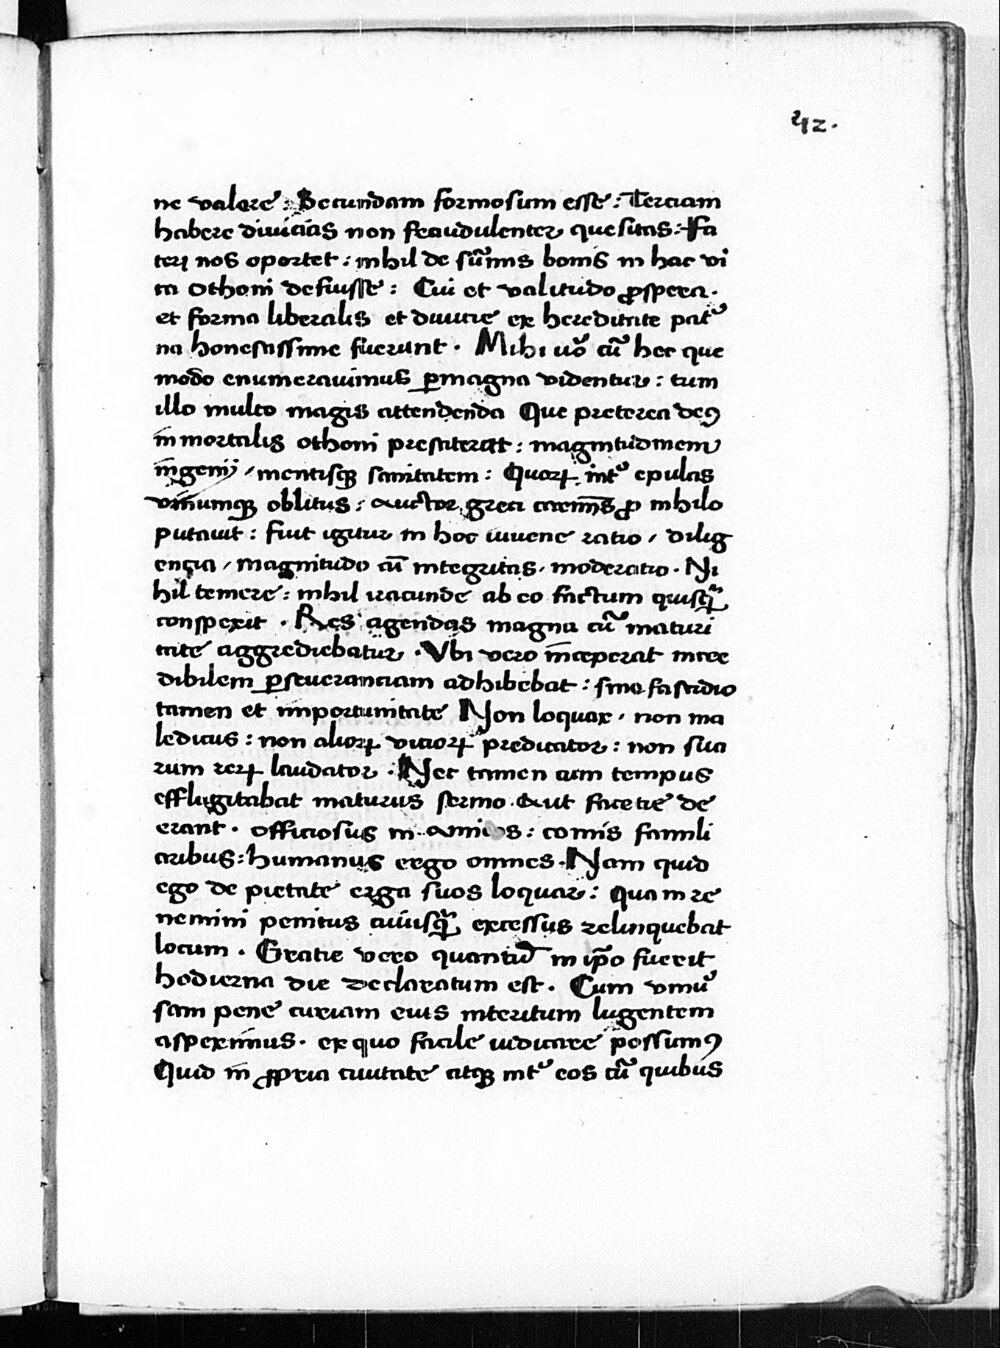 42.
ne valere : Secundam formosum esse : Terciam
habere diuicias non fraudulenter quesitas : Fa
teri nos oportet : nihil de sũmis bonis in hac vi
ta Othoni defuisse : Cui et valitudo ꝓspera .
et forma liberalis et diuicie ex hereditate pat͛
na honestissime fuerunt . Mihi uͦ cũ hec que
modo enumerauimus ꝑmagna videntur : tum
illo multo magis attendenda Que preterea deꝰ
inmortalis othoni prestiterat : magnitudinem
ingenij / mentisqꝫ sanitatem : Quoꝝ int͛ epulas
vinumqꝫ oblitus : auctor greci carmĩs ꝓ nihilo
putauit : fuit igitur in hoc iuuene ratio / dilig
encia / magnitudo cũ integritas / moderatio . Ni
hil temere : nihil iracunde ab eo factum quisqᷓ
conspexit . Res agendas magna cũ maturi
tate aggrediebatur . Vbi vero inceperat incre
dibilem ꝑseueranciam adhibebat : sine fastidio
tamen et inportunitate Non loquax / non ma
ledicus : non alioꝝ vicioꝝ predicator : non sua
rum reꝝ laudator . Nec tamen cum tempus
efflugitabat maturus sermo aut facetie de
erant . officiosus in amicos : comis famili
aribus : humanus ergo omnes . Nam quid
ego de pietate erga suos loquar : Qua in re
nemini penitus cuiusqᷓ excessus relinquebat
locum . Gratie vero quantũ in ip̃o fuerit
hodierna die declaratum est . Cum vniu͛
sam pene curiam eius interitum lugentem
aspeximus . ex quo facile iudicare possumꝰ
Quid in ꝓpria ciuitate atqꝫ int͛ eos cũ quibus